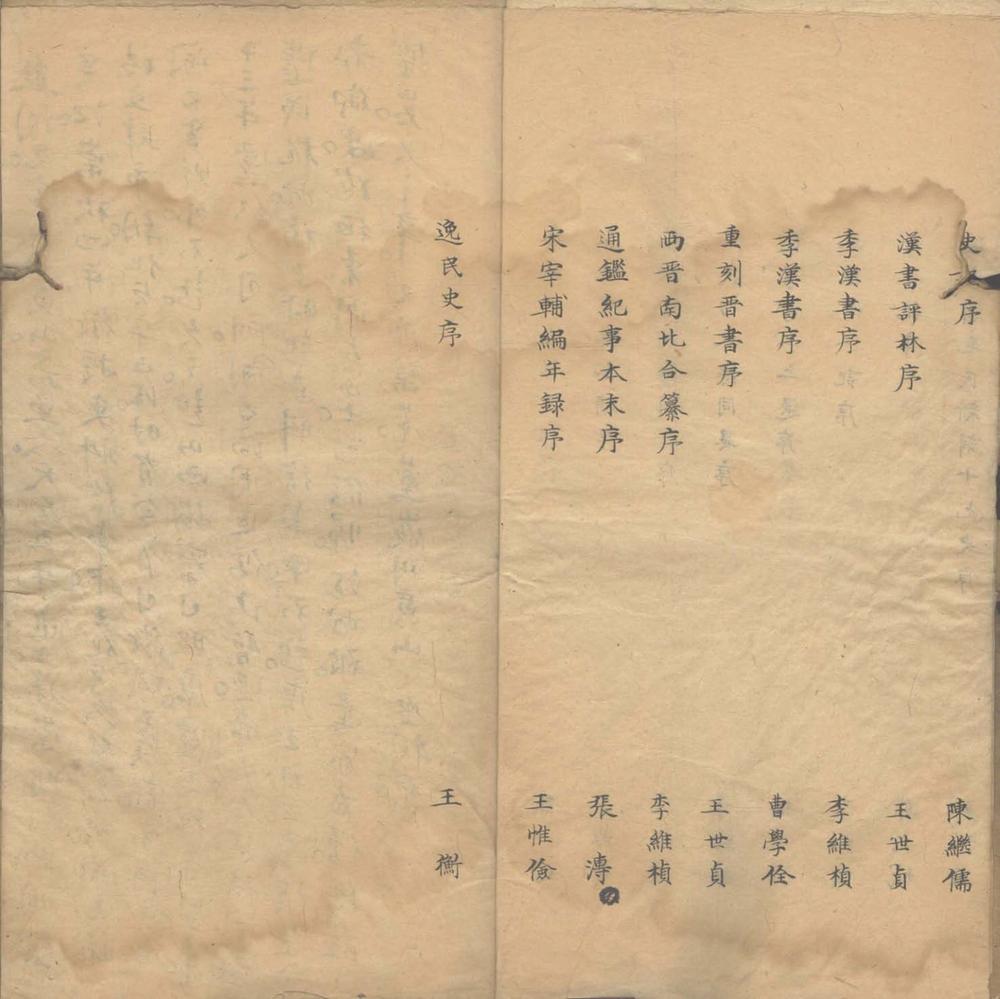 史 序 陳繼儒
漢書評林序 王世貞
季漢書序 李維楨
季漢書序 曹學佺
重刻晉書序 王世貞
西晋南北合纂序 李維楨
通鑑紀事本末序 張溥
宋宰輔編年録序 王惟儉
逸民史序 王衡